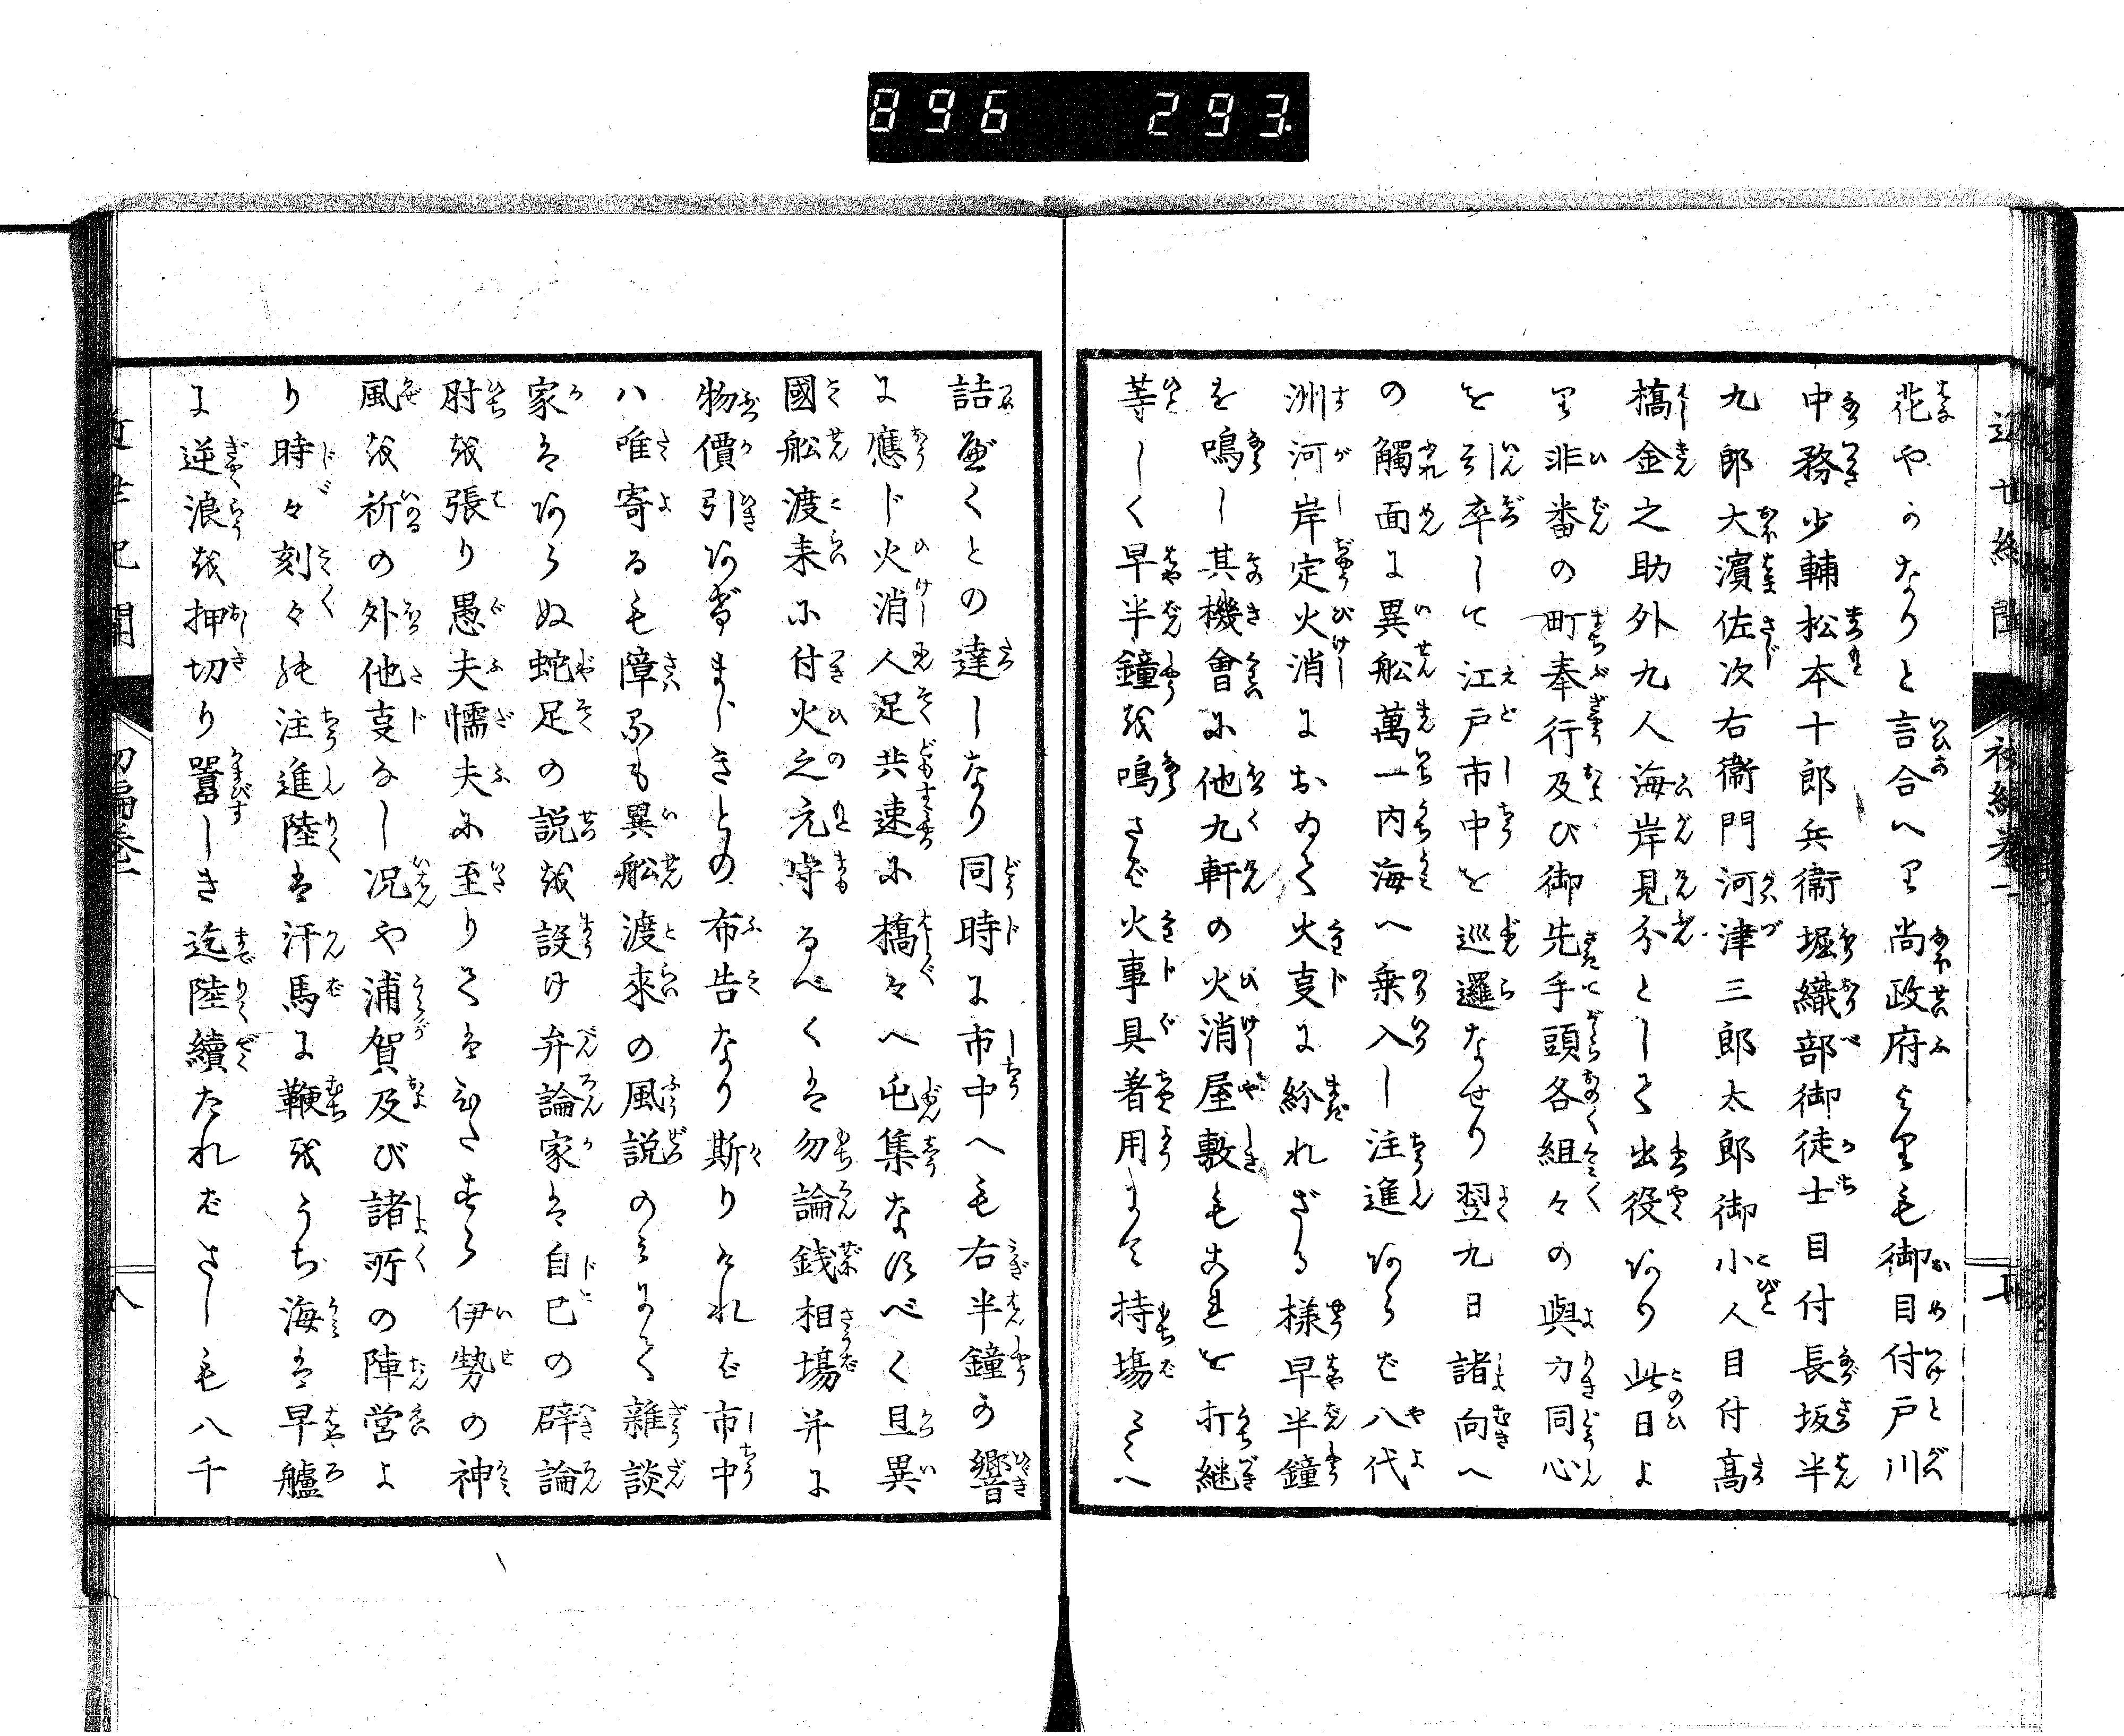 896 293.
花やかなりと言合へり尚政府よりも御目付戸川
中務少輔松本十郎兵衞堀織部御徒士目付長坂半
九郎大濱佐次右衞門河津三郎太郎御小人目付髙
橋金之助外九人海岸見分として出役あり此日よ
り非番の町奉行及び御先手頭各組々の與力同心
を引卒して江戸市中を巡邏なせり翌九日諸向へ
の觸面に異舩萬一内海へ乗入し注進あらば八代
洲河岸定火消において火事に紛れざる様早半鐘
を鳴し其機會に他九軒の火消屋敷もこれを打継
等しく早半鐘を鳴さば火事具着用にて持場々々へ
詰べくとの達しなり同時に市中へも右半鐘の響
に應じ火消人足共速に橋々へ屯集なすべく且異
國舩渡来に付火之元守るべくは勿論銭相場并に
物價引あげまじきとの布告なり斯りければ市中
ハ唯寄るも障るも異舩渡來の風説のみにて雜談
家はあらぬ蛇足の説を設け弁論家は自己の僻論
肘を張り愚夫懦夫に至りてはひたすら伊勢の神
風を祈の外他事なし况や浦賀及び諸所の陣営よ
り時々刻々の注進陸は汗馬に鞭をうち海は早艫
に逆浪を押切り囂しき迄陸續たればさしも八千
近世紀聞
初編巻一
八